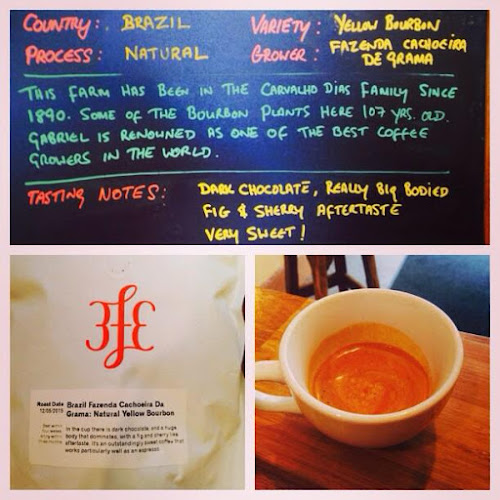 COUNTRY: BRAZIL VARIETY: YELLOW BOURBON
PROCESS: NATURAL GROWER: FAZENDA CACHOEIRA
DE GRAMA
THIS FARM HAS BEEN IN THE CARVALHO DIAS FAMILY SINCE
1890. SOME OF THE BOURBON PLANTS HERE 107 YRS. OLD.
GABRIEL IS RENOWNED AS ONE OF THE BEST COFFEE
GROWERS IN THE WORLD.
TASTING NOTES: DARK CHOCOLATE, REALLY BIG BODIED
FIG & SHERRY AFTERTASTE
VERY SWEET!
3FE
Roast Date Brazil Fazenda Cachoeira Da
Grama: Natural Yellow Bourbon
In the cup there is dark chocolate, and a huge
body that dominates, with a fig and sherry like
aftertaste. It's an outstandingly sweet coffee that
works particularly well as an espresso.